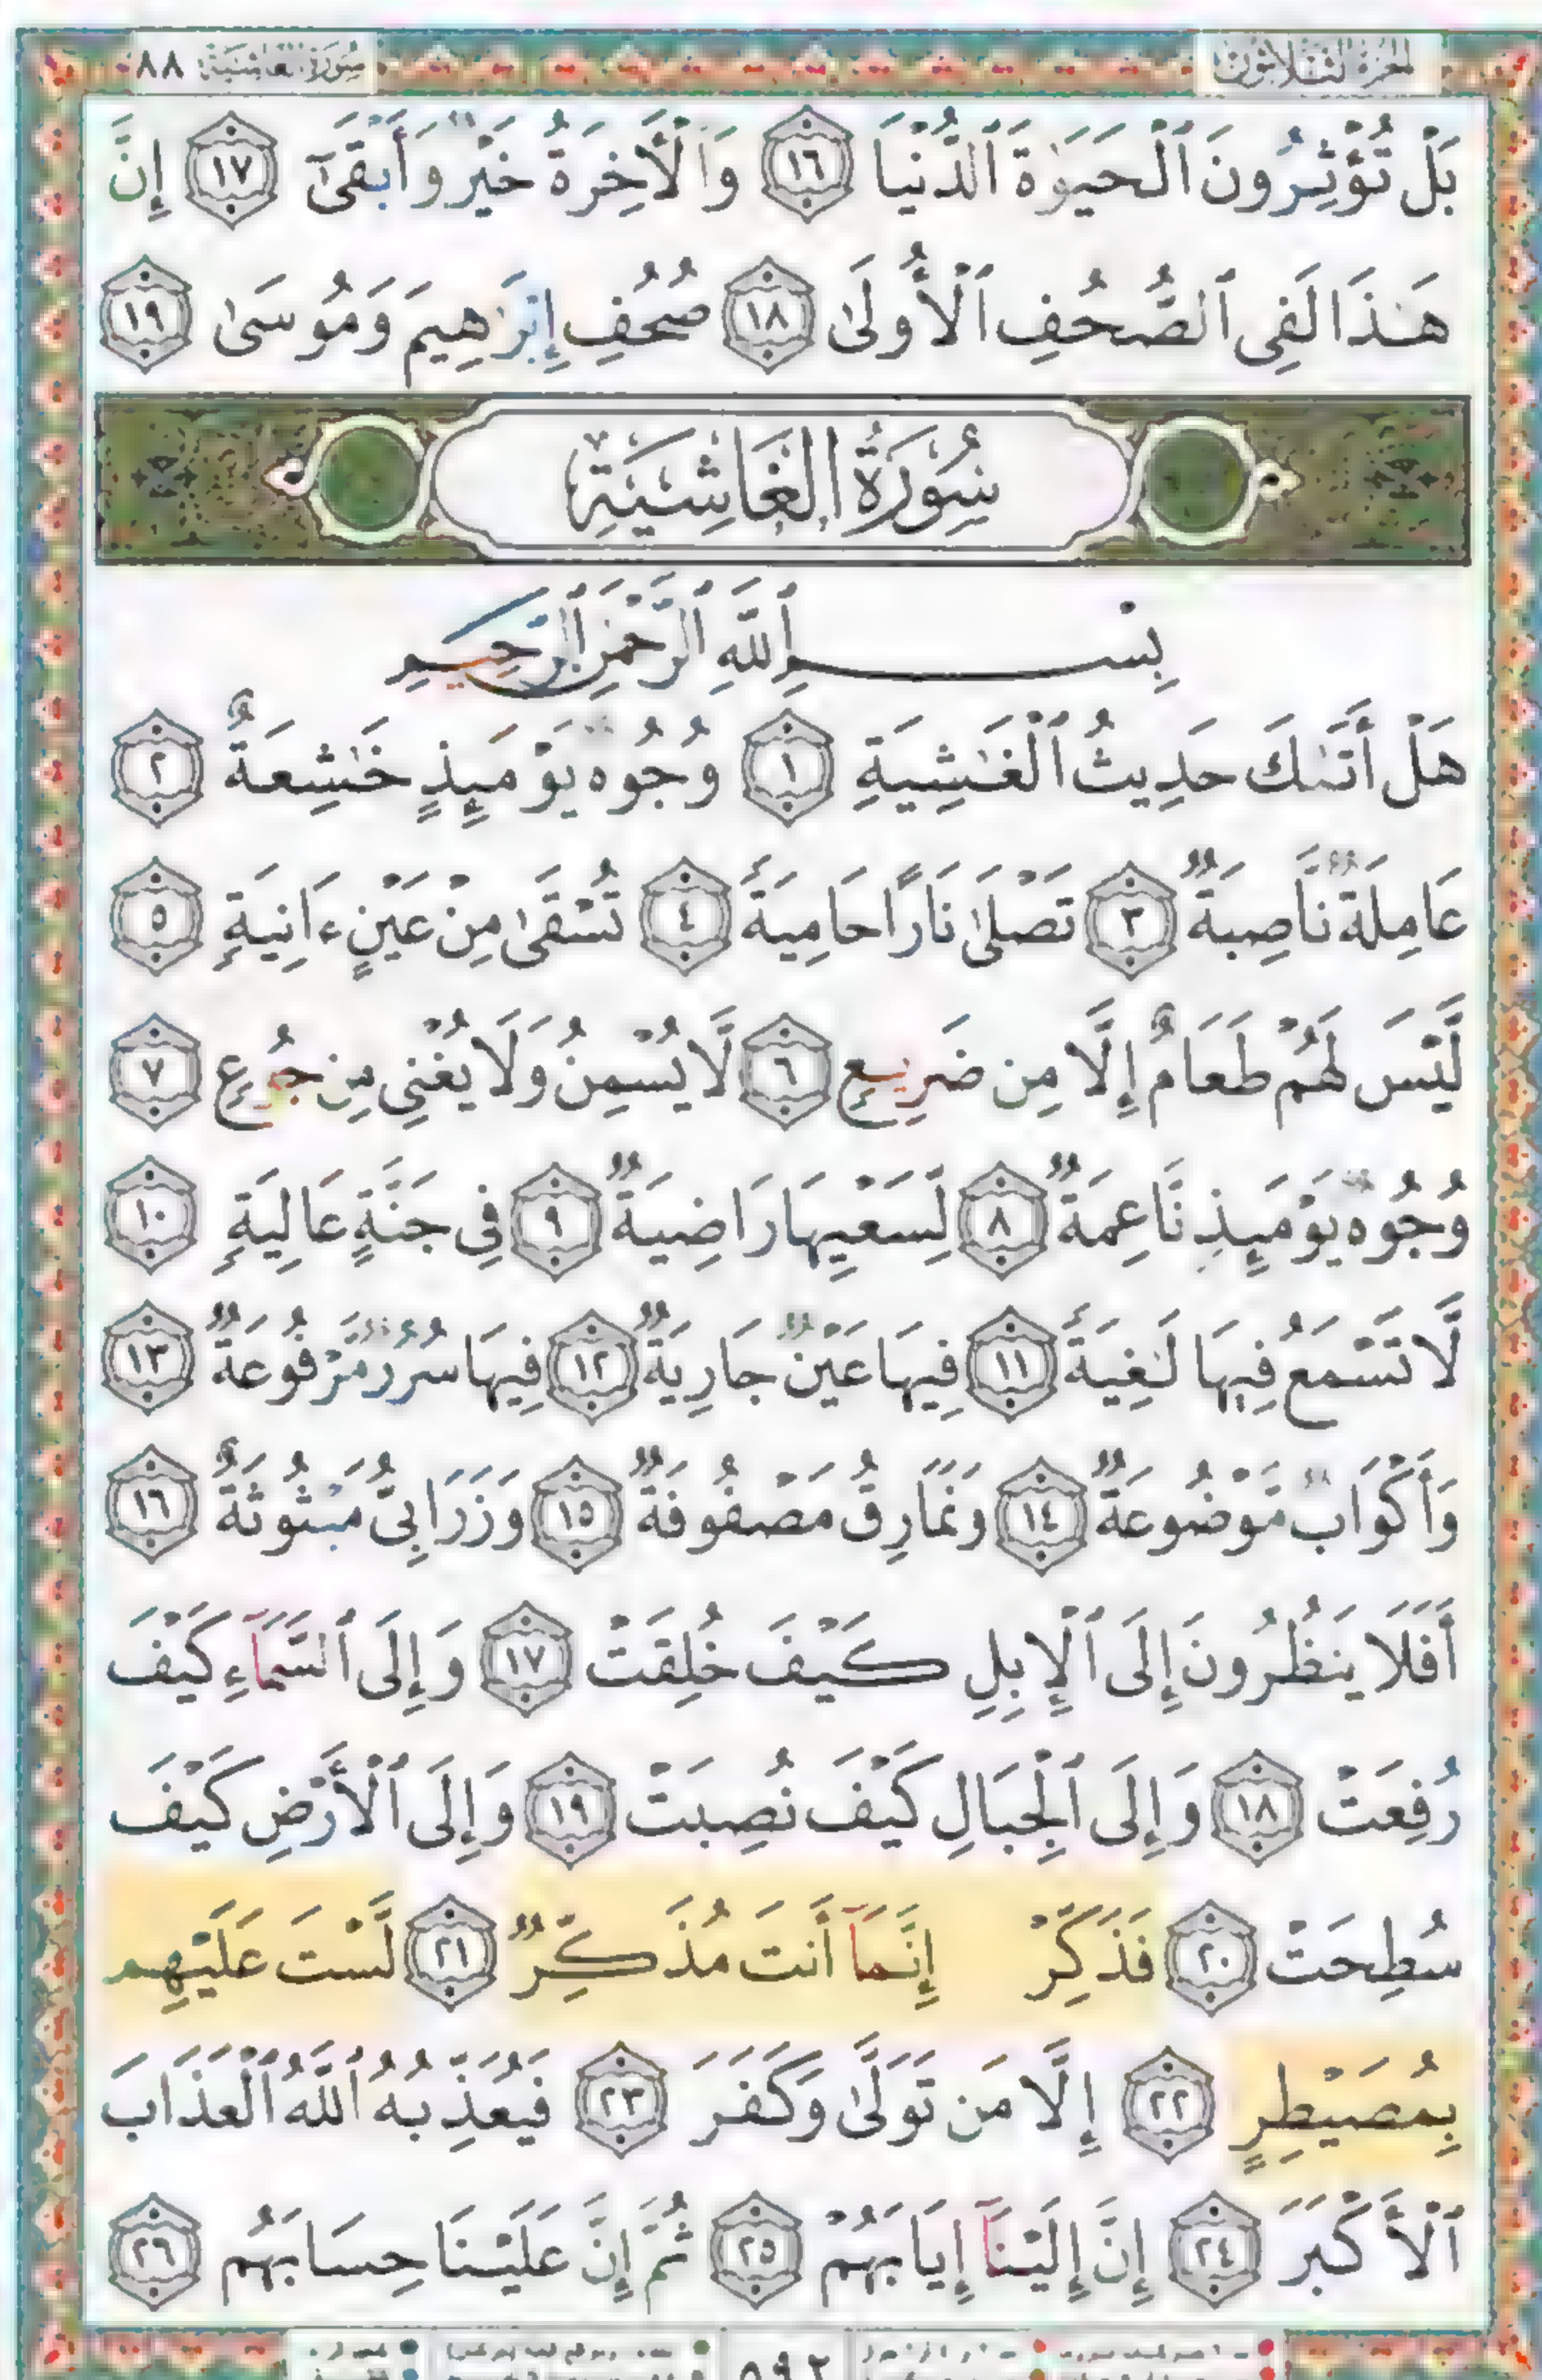 الجزء الثلاثون سورة الغاشية ٨٨
بَلْ تُؤْثِرُونَ ٱلْحَيَوٰةَ ٱلدُّنْيَا ١٦ وَٱلْأَخِرَةُ خَيْرٌ وَأَبْقَىٰٓ ١٧ إِنَّ
هَـٰذَا لَفِى ٱلصُّحُفِ ٱلْأُولَىٰ ١٨ صُحُفِ إِبْرَٰهِيمَ وَمُوسَىٰ ١٩
سُورَةُ الغَاشِيَةِ
بِسْمِ ٱللَّهِ ٱلرَّحْمَٰنِ ٱلرَّحِيمِ
هَلْ أَتَىٰكَ حَدِيثُ ٱلْغَـٰشِيَةِ ١ وُجُوهٌ يَوْمَئِذٍ خَـٰشِعَةٌ ٢
عَامِلَةٌ نَّاصِبَةٌ ٣ تَصْلَىٰ نَارًا حَامِيَةً ٤ تُسْقَىٰ مِنْ عَيْنٍ ءَانِيَةٍ ٥
لَّيْسَ لَهُمْ طَعَامٌ إِلَّا مِن ضَرِيعٍ ٦ لَّا يُسْمِنُ وَلَا يُغْنِى مِن جُوعٍ ٧
وُجُوهٌ يَوْمَئِذٍ نَّاعِمَةٌ ٨ لِّسَعْيِهَا رَاضِيَةٌ ٩ فِى جَنَّةٍ عَالِيَةٍ ١٠
لَّا تَسْمَعُ فِيهَا لَـٰغِيَةً ١١ فِيهَا عَيْنٌ جَارِيَةٌ ١٢ فِيهَا سُرُرٌ مَّرْفُوعَةٌ ١٣
وَأَكْوَابٌ مَّوْضُوعَةٌ ١٤ وَنَمَارِقُ مَصْفُوفَةٌ ١٥ وَزَرَابِىُّ مَبْثُوثَةٌ ١٦
أَفَلَا يَنظُرُونَ إِلَى ٱلْإِبِلِ كَيْفَ خُلِقَتْ ١٧ وَإِلَى ٱلسَّمَآءِ كَيْفَ
رُفِعَتْ ١٨ وَإِلَى ٱلْجِبَالِ كَيْفَ نُصِبَتْ ١٩ وَإِلَى ٱلْأَرْضِ كَيْفَ
سُطِحَتْ ٢٠ فَذَكِّرْ إِنَّمَآ أَنتَ مُذَكِّرٌ ٢١ لَّسْتَ عَلَيْهِم
بِمُصَيْطِرٍ ٢٢ إِلَّا مَن تَوَلَّىٰ وَكَفَرَ ٢٣ فَيُعَذِّبُهُ ٱللَّهُ ٱلْعَذَابَ
ٱلْأَكْبَرَ ٢٤ إِنَّ إِلَيْنَآ إِيَابَهُمْ ٢٥ ثُمَّ إِنَّ عَلَيْنَا حِسَابَهُم ٢٦
٥٩٢